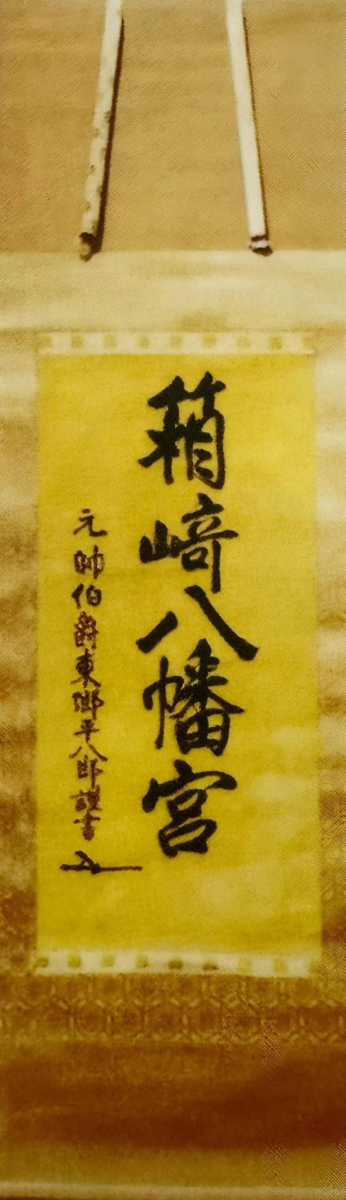 箱﨑八幡宮
元帥伯爵東郷平八郎謹書